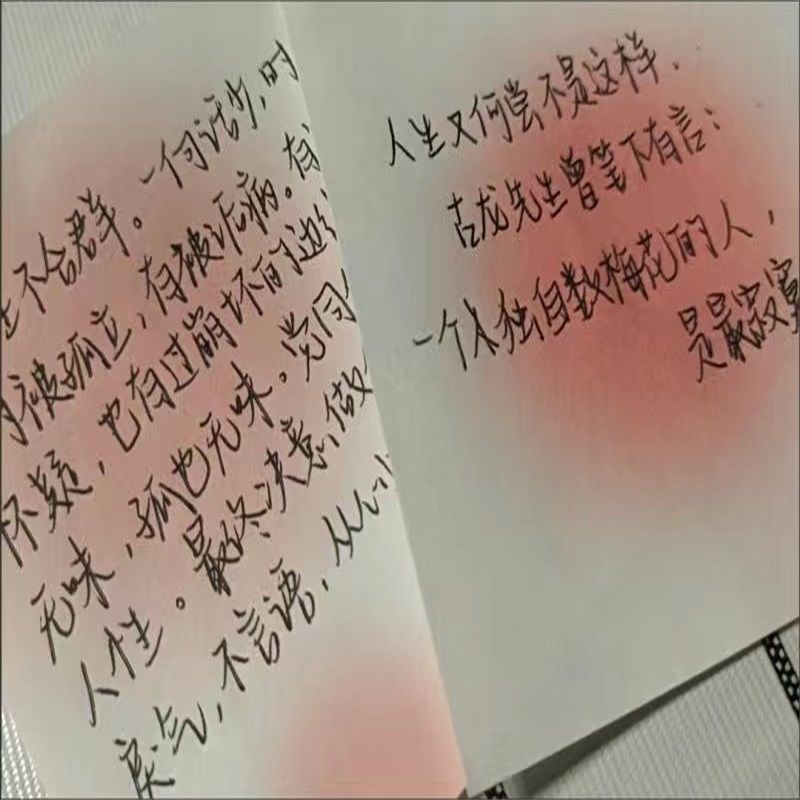 不合群。一向话少,时
被孤立,有被诟病。有
怀疑,也有过崩坏的边
无味,孤也无味。党同
人性。最终决意,做
戾气,不言语,从
人生又何尝不是这样.
古龙先生曾笔下有言:
一个人独自数梅花的人,
是最寂寞